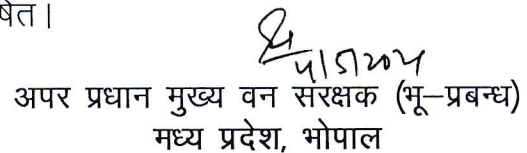 षेत।
अपर प्रधान मुख्य वन संरक्षक (भू–प्रबन्ध)
मध्य प्रदेश, भोपाल